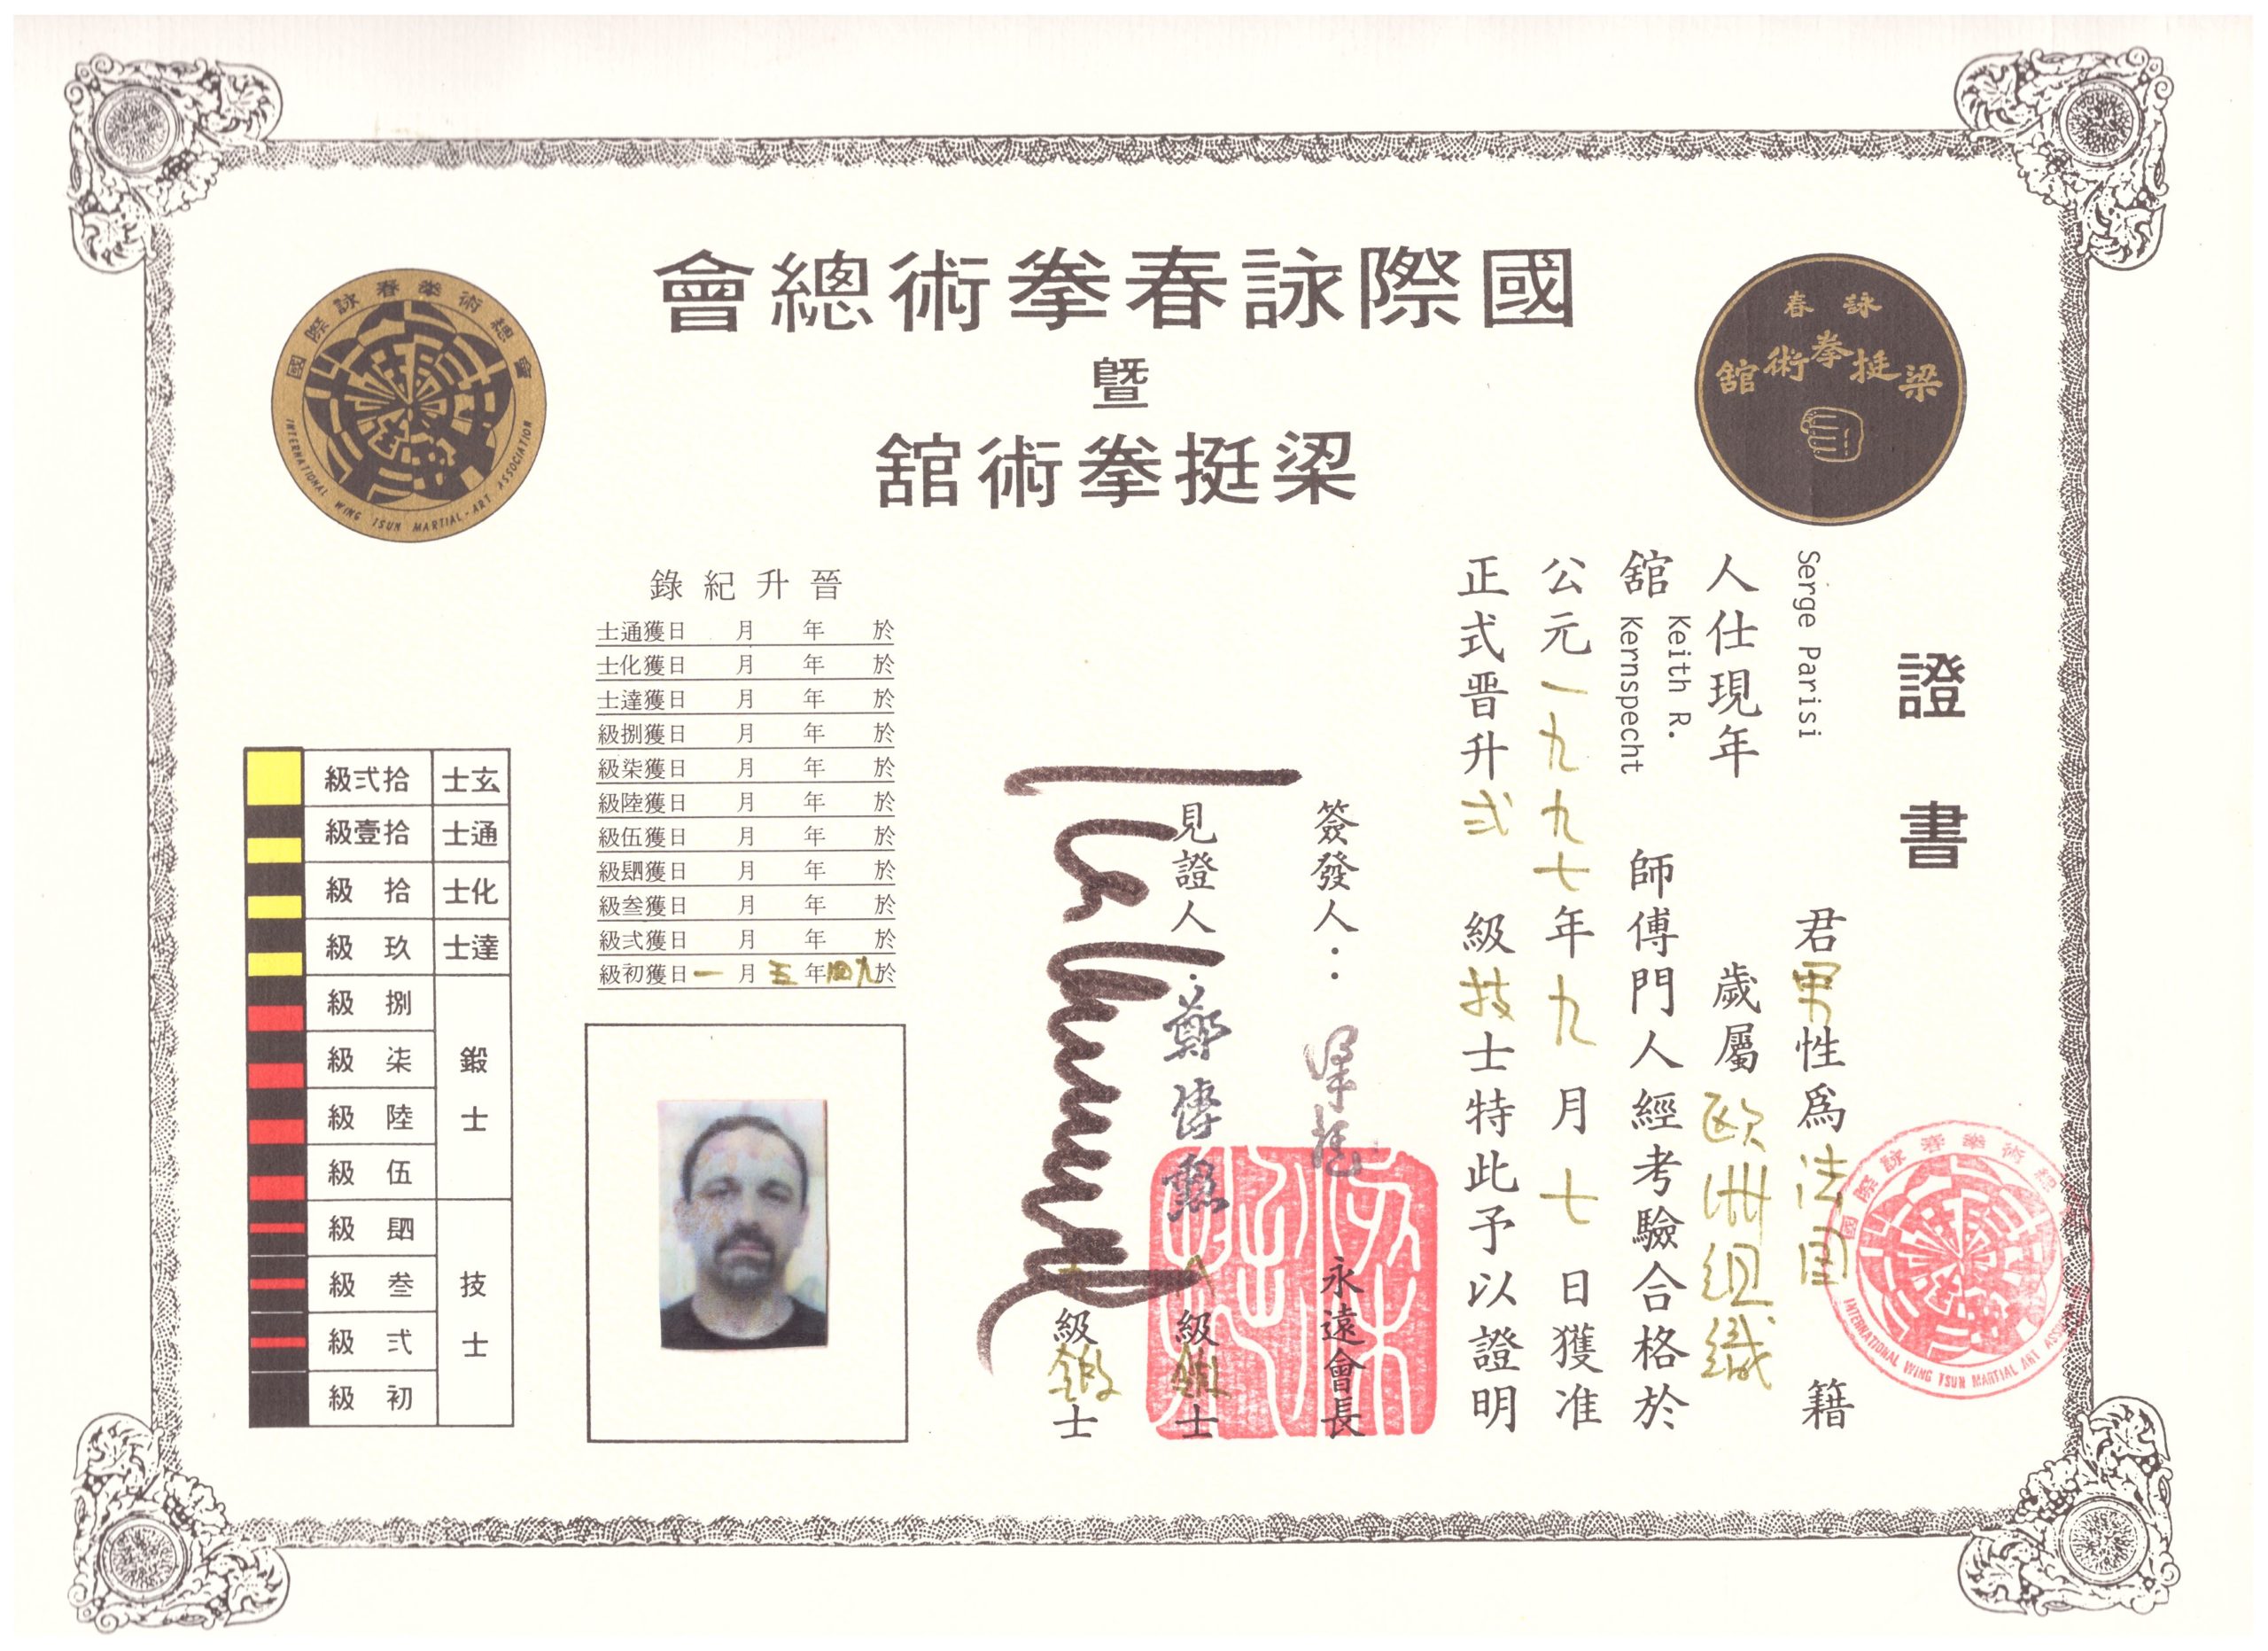 國際詠春拳術總會
暨
梁挺拳術舘
國際詠春拳術總會
INTERNATIONAL WING TSUN MARTIAL-ART ASSOCIATION
詠春
梁挺拳術舘
證書
Serge Parisi 君男性為法国籍
人仕現年 歲屬欧洲组織
舘 Keith R. Kernspecht 師傅門人經考驗合格於
公元一九九七年九月七日獲准
正式晋升弍級技士特此予以證明
簽發人：梁挺 永遠會長
見證人：鄭 八級鍛士
級鍛士
國際詠春拳術總
INTERNATIONAL WING TSUN MARTIAL ART
晉升紀錄
於 年 月 日獲通士
於 年 月 日獲化士
於 年 月 日獲達士
於 年 月 日獲捌級
於 年 月 日獲柒級
於 年 月 日獲陸級
於 年 月 日獲伍級
於 年 月 日獲肆級
於 年 月 日獲叁級
於 年 月 日獲弍級
於九四年五月一日獲初級
玄士 拾弍級
通士 拾壹級
化士 拾級
達士 玖級
鍛士 捌級
柒級
陸級
伍級
技士 肆級
叁級
弍級
初級